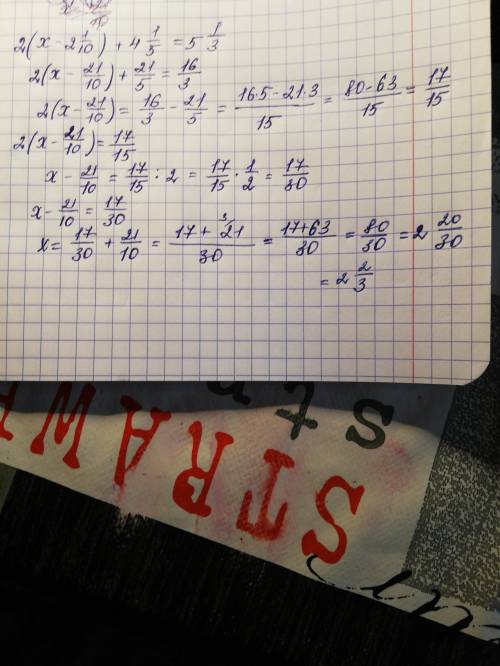 2(x - 2 1/10) + 4 1/5 = 5 1/3
2(x - 21/10) + 21/5 = 16/3
2(x - 21/10) = 16/3 - 21/5 = (16·5 - 21·3)/15 = (80-63)/15 = 17/15
2(x - 21/10) = 17/15
x - 21/10 = 17/15 : 2 = 17/15 · 1/2 = 17/30
x - 21/10 = 17/30
x = 17/30 + 21/10 = (17 + ³21)/30 = (17+63)/30 = 80/30 = 2 20/30
= 2 2/3
STRAW